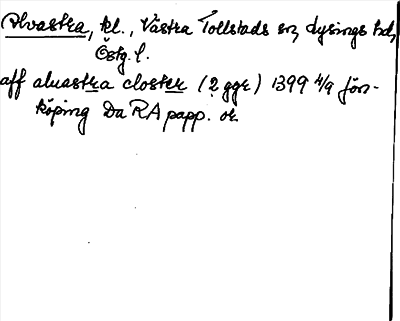 Alvastra, kl., Västra Tollstads sn, Lysings hd,
Östg. l.
aff aluastra closter (2 ggr) 1399 4/9 Jön-
köping Da RA papp. or.